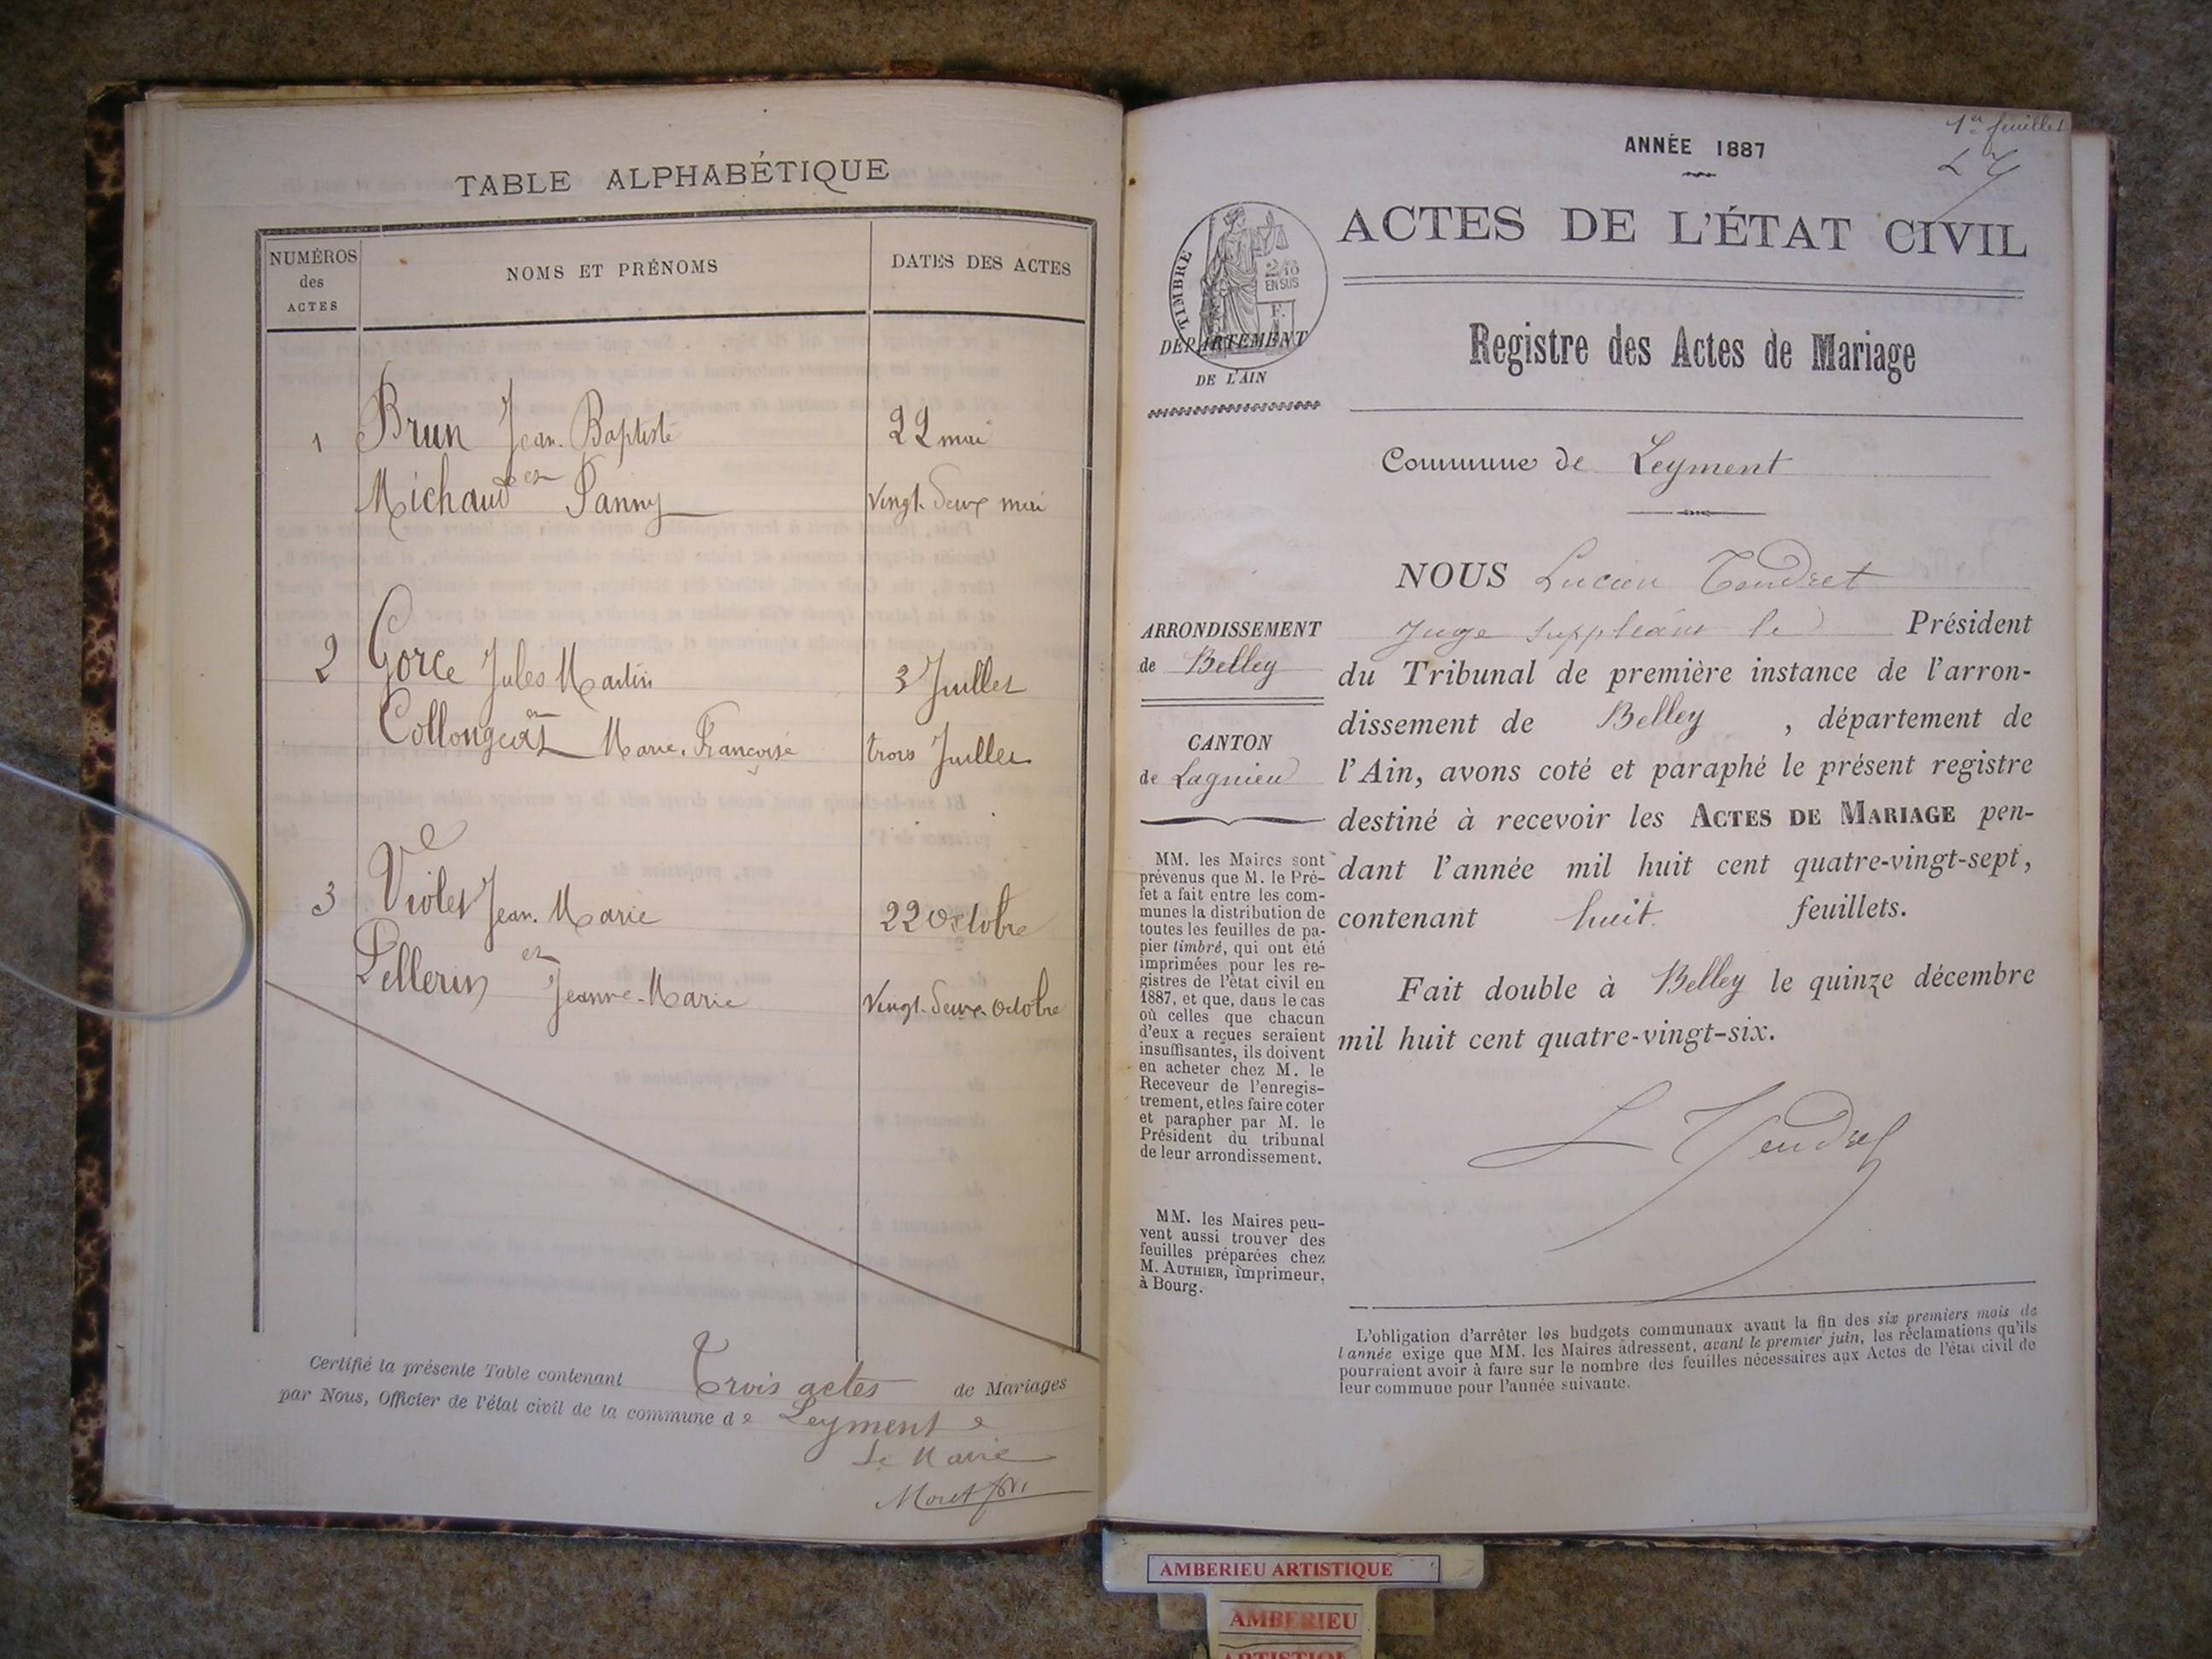 TABLE ALPHABÉTIQUE
NUMÉROS
des
ACTES
NOMS ET PRÉNOMS
DATES DES ACTES
1 Brun Jean-Baptiste 22 mai
et
Michaud Fanny vingt-deux mai
2 Gorce Jules Martin 3 Juillet
et
Collongeat Marie-Françoise trois Juillet
3 Violet Jean-Marie 22 Octobre
et
Pellerin Jeanne-Marie vingt-deux Octobre
Certifié la présente Table contenant Trois actes de Mariages
par Nous, Officier de l'état civil de la commune de Leyment
Le Maire
1er feuillet
ANNÉE 1887
LT
ACTES DE L'ÉTAT CIVIL
TIMBRE
2/10
EN SUS
F.
DÉPARTEMENT
DE L'AIN
Registre des Actes de Mariage
Commune de Leyment
NOUS Lucien Tendret
Juge suppléant le Président
du Tribunal de première instance de l'arron-
dissement de Belley, département de
l'Ain, avons coté et paraphé le présent registre
destiné à recevoir les ACTES DE MARIAGE pen-
dant l'année mil huit cent quatre-vingt-sept,
contenant huit feuillets.
Fait double à Belley le quinze décembre
mil huit cent quatre-vingt-six.
L Tendret
ARRONDISSEMENT
de Belley
CANTON
de Lagnieu
MM. les Maires sont
prévenus que M. le Pré-
fet a fait entre les com-
munes la distribution de
toutes les feuilles de pa-
pier timbré, qui ont été
imprimées pour les re-
gistres de l'état civil en
1887, et que, dans le cas
où celles que chacun
d'eux a reçues seraient
insuffisantes, ils doivent
en acheter chez M. le
Receveur de l'enregis-
trement, et les faire coter
et parapher par M. le
Président du tribunal
de leur arrondissement.
MM. les Maires peu-
vent aussi trouver des
feuilles préparées chez
M. AUTHIER, imprimeur,
à Bourg.
L'obligation d'arrêter les budgets communaux avant la fin des six premiers mois de
l'année exige que MM. les Maires adressent, avant le premier juin, les réclamations qu'ils
pourraient avoir à faire sur le nombre des feuilles nécessaires aux Actes de l'état civil de
leur commune pour l'année suivante.
AMBERIEU ARTISTIQUE
AMBERIEU
ARTISTIQUE